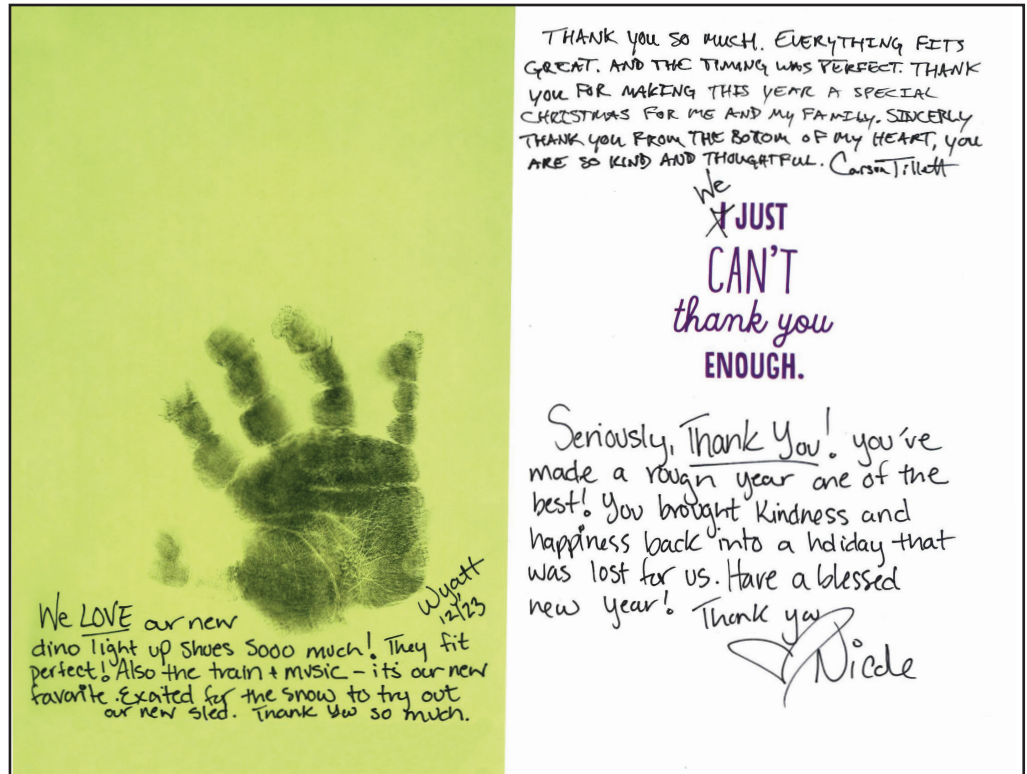 We LOVE our new
dino light up shoes Sooo much! They fit
perfect! Also the train + music - its our new
favorite. Exated for the snow to try out
our new sled. Thank you so much.
Wyatt
12/23
THANK YOU SO MUCH. EVERYTHING FITS
GREAT. AND THE TIMING WAS PERFECT. THANK
YOU FOR MAKING THIS YEAR A SPECIAL
CHRISTMAS FOR ME AND MY FAMILY. SINCERLY
THANK YOU FROM THE BOTOM OF MY HEART, YOU
ARE SO KIND AND THOUGHTFUL. Carson Tillett
We
I JUST
CAN'T
thank you
ENOUGH.
Seriously, Thank You! you've
made a rough year one of the
best! You brought Kindness and
happiness back into a holiday that
was lost for us. Have a blessed
new year! Thank you
Nicole